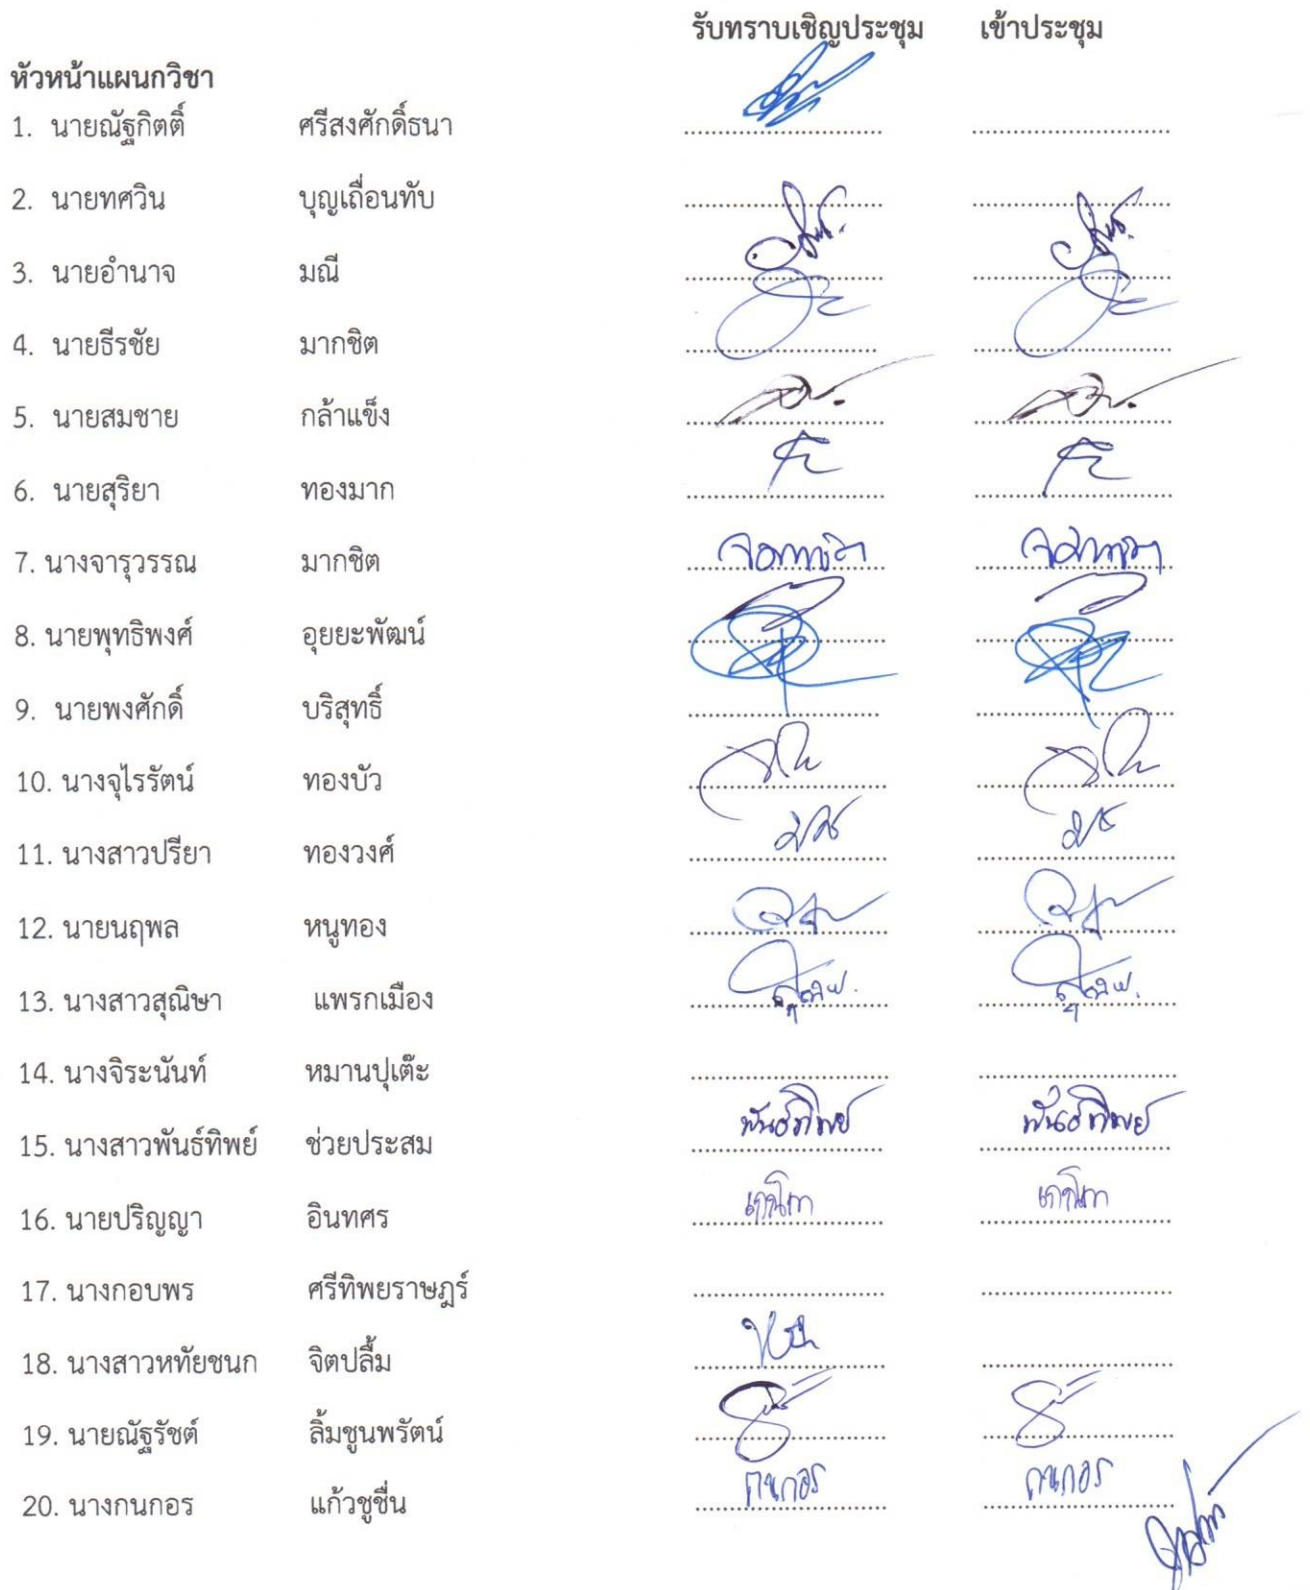 รับทราบเชิญประชุม เข้าประชุม
หัวหน้าแผนกวิชา
1. นายณัฐกิตติ์ ศรีสงศักดิ์ธนา
2. นายทศวิน บุญเถื่อนทับ
3. นายอำนาจ มณี
4. นายธีรชัย มากชิต
5. นายสมชาย กล้าแข็ง
6. นายสุริยา ทองมาก
7. นางจารุวรรณ มากชิต
8. นายพุทธิพงศ์ อุยยะพัฒน์
9. นายพงศักดิ์ บริสุทธิ์
10. นางจุไรรัตน์ ทองบัว
11. นางสาวปรียา ทองวงศ์
12. นายนฤพล หนูทอง
13. นางสาวสุณิษา แพรกเมือง
14. นางจิระนันท์ หมานปุเต๊ะ
15. นางสาวพันธ์ทิพย์ ช่วยประสม พันธ์ทิพย์ พันธ์ทิพย์
16. นายปริญญา อินทศร
17. นางกอบพร ศรีทิพยราษฎร์
18. นางสาวหทัยชนก จิตปลื้ม
19. นายณัฐรัชต์ ลิ้มชูนพรัตน์
20. นางกนกอร แก้วชูชื่น กนกอร กนกอร